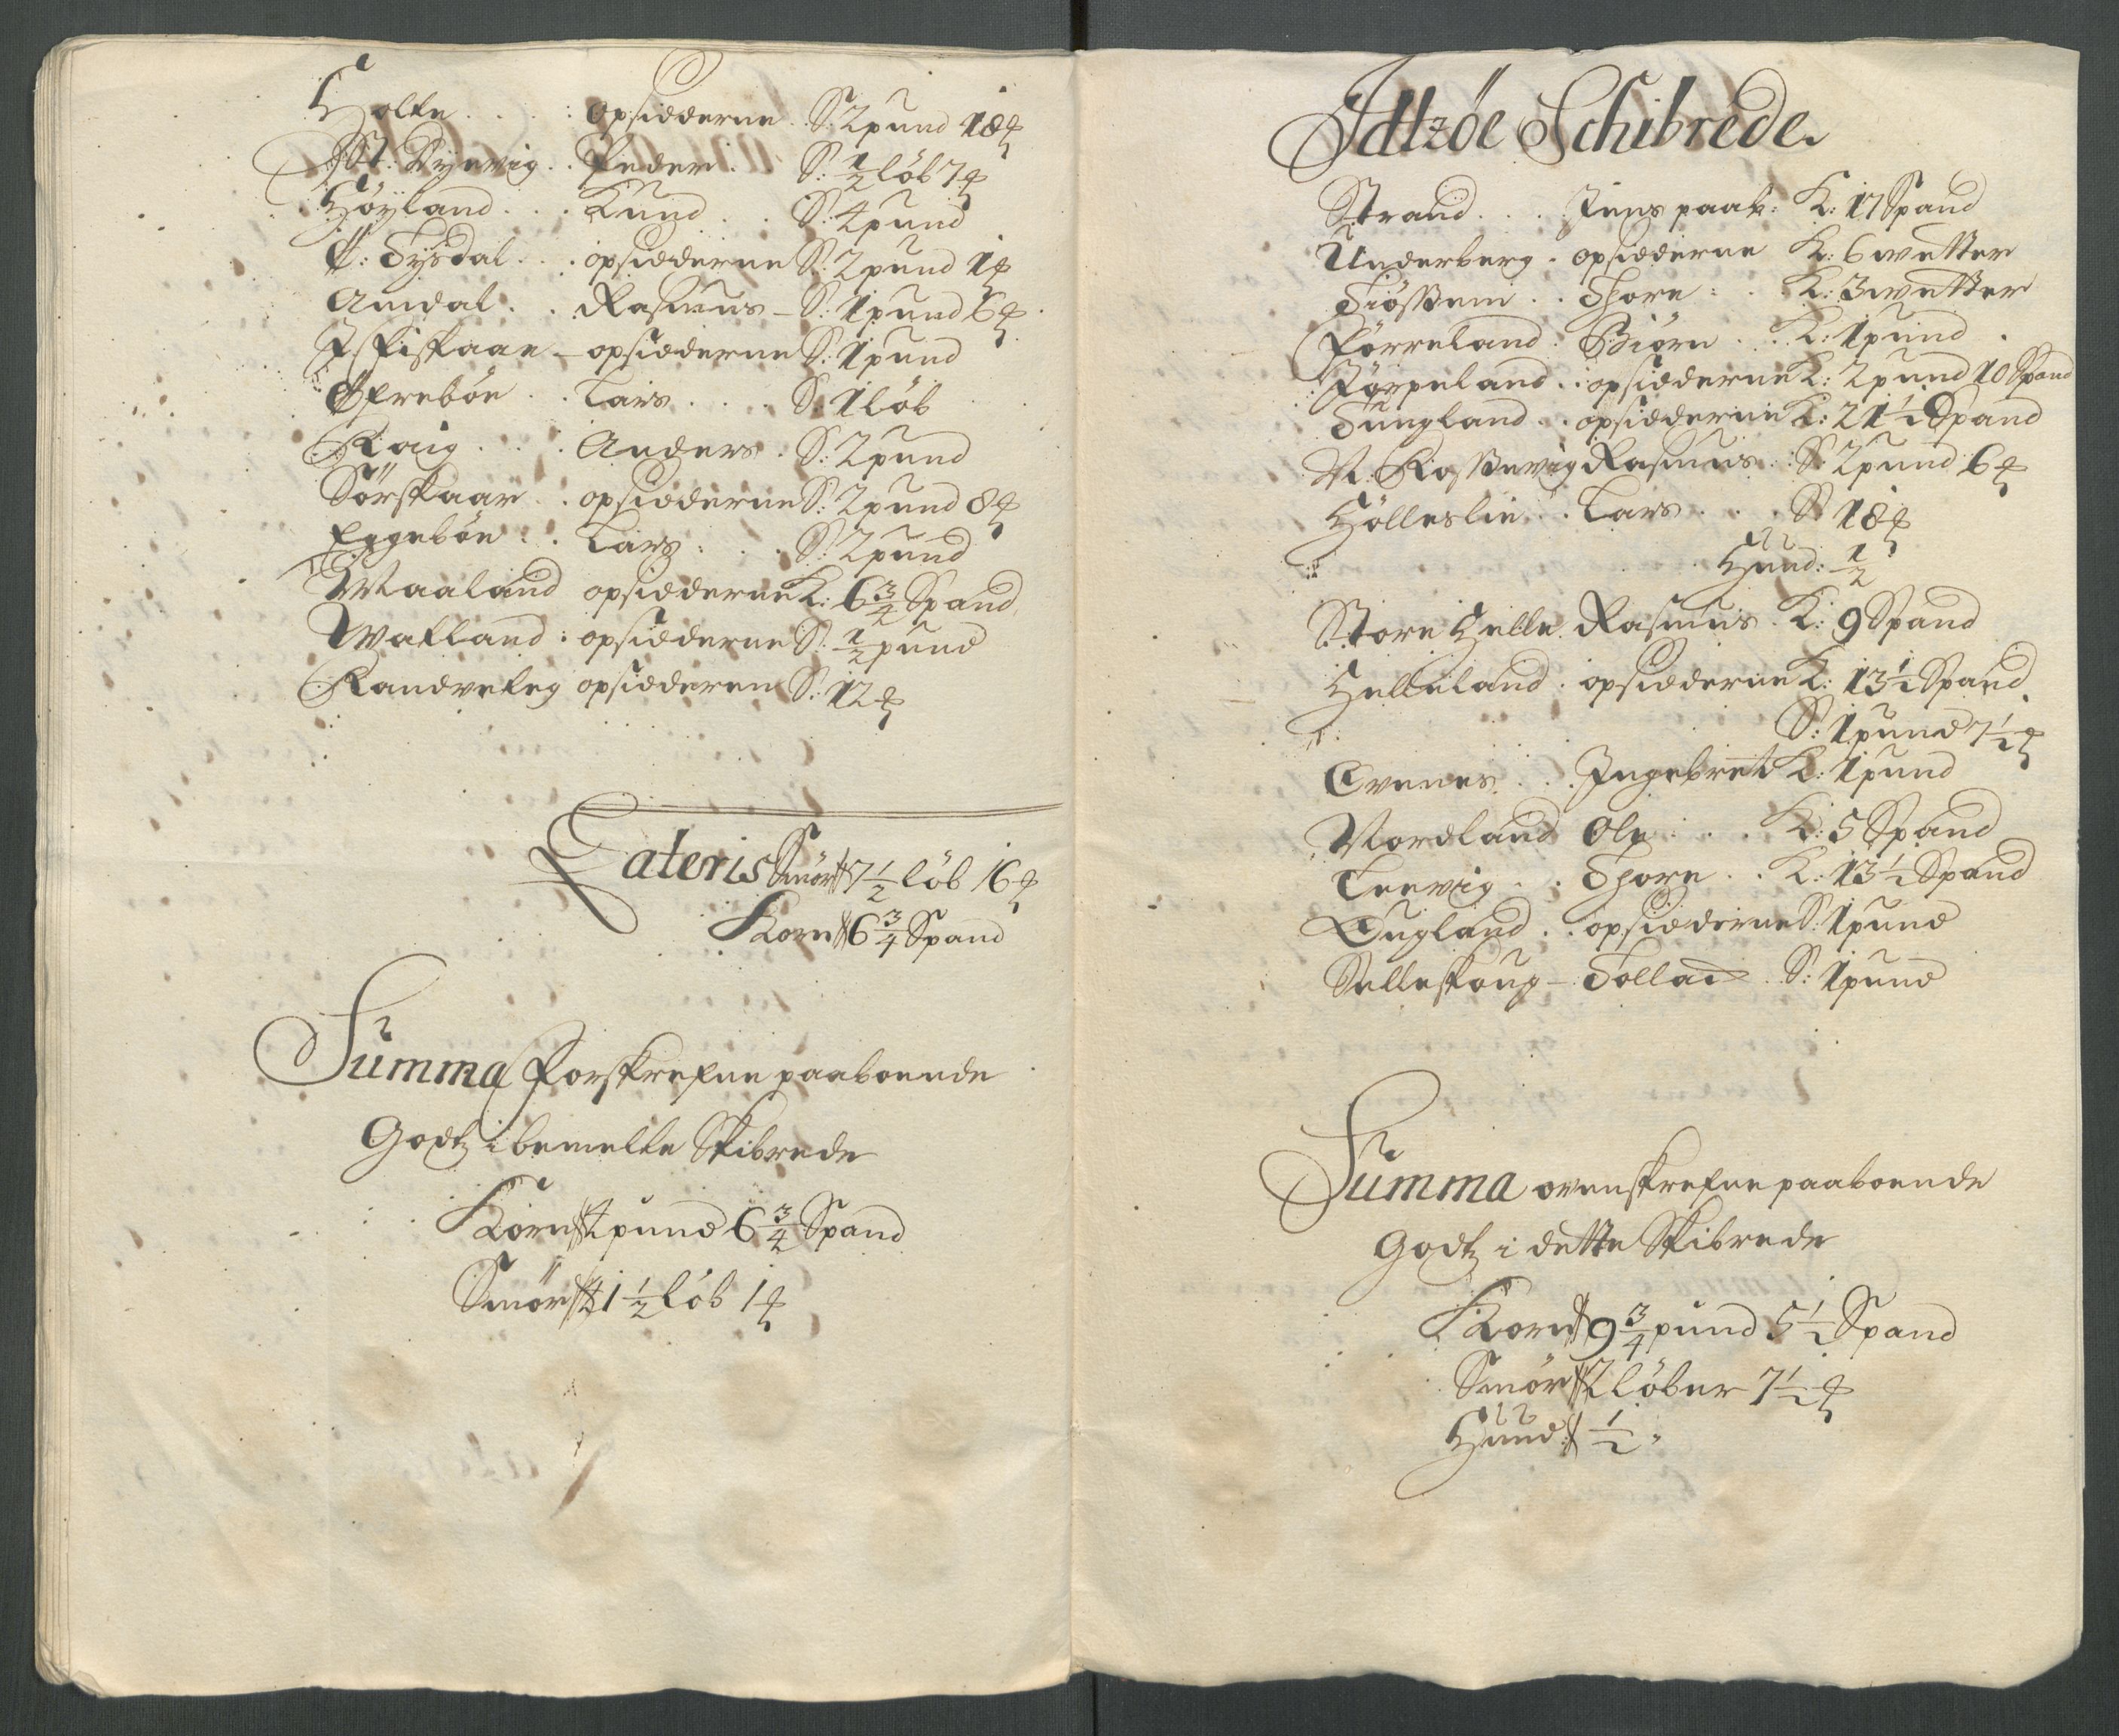 Holte . . . : opsidderne . S: 2 pund 18 ℔
St: Dysvig . . Peder . S: 1/2 löb 7 ℔
Höyland . . . Knud . . S: 4 pund
Ö: Tysdal . . . opsidderne S: 2 pund 1 ℔
Amdal . . Rasmus - S: 1 pund 6 ℔
Fiskaae - opsidderne S: 1 pund
Öfreböe . . Lars . . . S: 1 löb
Kaig . . . Anders . S: 2 pund
Sörskaar . . opsidderne S: 2 pund 8 ℔
Eggeböe . . Lars . . . S: 2 pund
Maaland opsidderne K: 6 3/4 Spand
Watland : opsidderne S: 1/2 pund
opsidderen S: 12 ℔
Lateris Smör 7 1/2 löb 16 ℔
Korn 6 3/4 Spand
Summa Forskrefne paaboende
Godtz i bemelte Skibrede
Korn 4 pund 6 3/4 Spand
Smör 1 1/2 löb 1 ℔
Idtzöe Schibrede
Strand . . . Jens paab: K: 17 Spand
Underberg . opsidderne K: 6 wetter
Fiössem . . Thore : . K: 3 wetter
Pörreland : Biörn . . K: 1 pund .
Jörpeland . : opsidderne K: 2 pund 10 Spand
Tungland . . opsidderne K: 21 1/2 Spand
N: Kossevig Rasmus . S: 2 pund 6 ℔
Hölleslie . . Lars . . . S: 18 ℔
Hund: 1/2
Store Helle . Rasmus . K: 9 Spand
Helleland . opsidderne K: 13 1/2 Spand
S: 1 pund 7 1/2 ℔
Evenes . . . Ingebret K: 1 pund
Nordland Ole : . . K: 5 Spand
Leevig . . Thore . . K: 13 1/2 Spand
Dugland . . opsidderne S: 1 pund
Selleskoug - Tollac . S: 1 pund
Summa ovenskrefne paaboende
Godtz i dette Skibrede
Korn 9 3/4 pund 5 1/2 Spand
Smör 2 löber 7 1/2 ℔
Hund 1/2